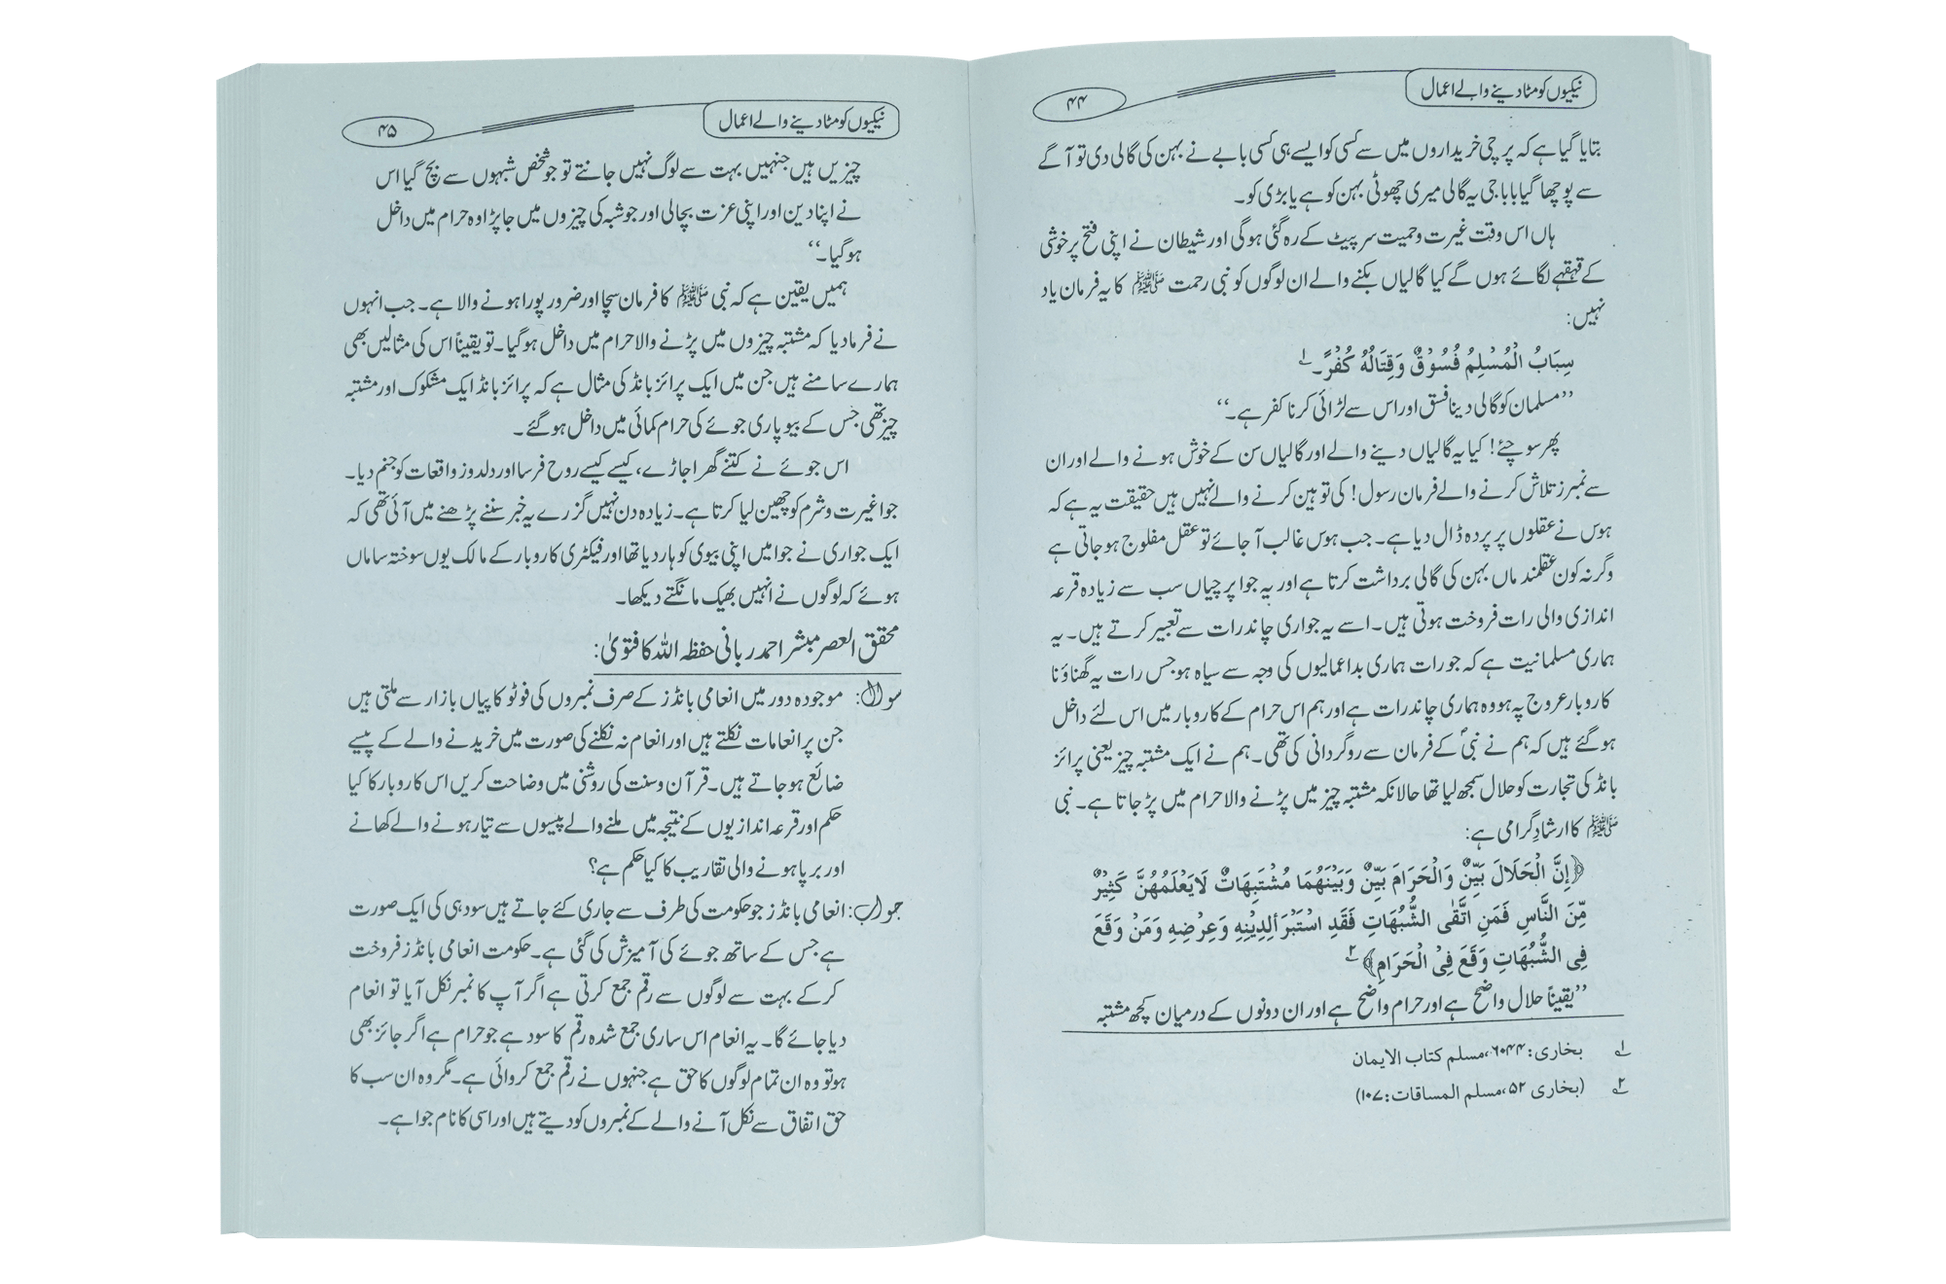 نیکیوں کو مٹا دینے والے اعمال
۴۴
بتایا گیا ہے کہ پرچی خریداروں میں سے کسی کو ایسے ہی کسی بابے نے بہن کی گالی دی تو آگے
سے پوچھا گیا باباجی یہ گالی میری چھوٹی بہن کو ہے یا بڑی کو۔
ہاں اس وقت غیرت وحمیت سر پیٹ کے رہ گئی ہوگی اور شیطان نے اپنی فتح پر خوشی
کے قہقہے لگائے ہوں گے کیا گالیاں بکنے والے ان لوگوں کو نبی رحمت ﷺ کا یہ فرمان یاد
نہیں:
سِبَابُ الْمُسْلِمِ فُسُوْقٌ وَقِتَالُهُ كُفْرٌ۔ ۱؎
’’مسلمان کو گالی دینا فسق اور اس سے لڑائی کرنا کفر ہے۔‘‘
پھر سوچئے! کیا یہ گالیاں دینے والے اور گالیاں سن کے خوش ہونے والے اور ان
سے نمبرز تلاش کرنے والے فرمان رسول! کی توہین کرنے والے نہیں ہیں حقیقت یہ ہے کہ
ہوس نے عقلوں پر پردہ ڈال دیا ہے۔ جب ہوس غالب آجائے تو عقل مفلوج ہوجاتی ہے
وگرنہ کون عقلمند ماں بہن کی گالی برداشت کرتا ہے اور یہ جوا پرچیاں سب سے زیادہ قرعہ
اندازی والی رات فروخت ہوتی ہیں۔ اسے یہ جواری چاند رات سے تعبیر کرتے ہیں۔ یہ
ہماری مسلمانیت ہے کہ جو رات ہماری بداعمالیوں کی وجہ سے سیاہ ہو جس رات یہ گھناؤنا
کاروبار عروج پہ ہو وہ ہماری چاند رات ہے اور ہم اس حرام کے کاروبار میں اس لئے داخل
ہوگئے ہیں کہ ہم نے نبیؐ کے فرمان سے روگردانی کی تھی۔ ہم نے ایک مشتبہ چیز یعنی پرائز
بانڈ کی تجارت کو حلال سمجھ لیا تھا حالانکہ مشتبہ چیز میں پڑنے والا حرام میں پڑ جاتا ہے۔ نبی
ﷺ کا ارشادِ گرامی ہے:
﴿إِنَّ الْحَلَالَ بَيِّنٌ وَالْحَرَامَ بَيِّنٌ وَبَيْنَهُمَا مُشْتَبِهَاتٌ لَايَعْلَمُهُنَّ كَثِيْرٌ
مِّنَ النَّاسِ فَمَنِ اتَّقٰى الشُّبُهَاتِ فَقَدِ اسْتَبْرَأَلِدِيْنِهِ وَعِرْضِهِ وَمَنْ وَقَعَ
فِي الشُّبُهَاتِ وَقَعَ فِيْ الْحَرَامِ﴾ ۲؎
’’یقیناً حلال واضح ہے اور حرام واضح ہے اور ان دونوں کے درمیان کچھ مشتبہ
۱؎ بخاری: ۶۰۴۴، مسلم کتاب الایمان
۲؎ (بخاری ۵۲، مسلم المساقات: ۱۰۷)
نیکیوں کو مٹا دینے والے اعمال
۴۵
چیزیں ہیں جنہیں بہت سے لوگ نہیں جانتے تو جو شخص شبہوں سے بچ گیا اس
نے اپنا دین اور اپنی عزت بچالی اور جو شبہ کی چیزوں میں جا پڑا وہ حرام میں داخل
ہوگیا۔‘‘
ہمیں یقین ہے کہ نبی ﷺ کا فرمان سچا اور ضرور پورا ہونے والا ہے۔ جب انہوں
نے فرما دیا کہ مشتبہ چیزوں میں پڑنے والا حرام میں داخل ہوگیا۔ تو یقیناً اس کی مثالیں بھی
ہمارے سامنے ہیں جن میں ایک پرائز بانڈ کی مثال ہے کہ پرائز بانڈ ایک مشکوک اور مشتبہ
چیز تھی جس کے بیوپاری جوئے کی حرام کمائی میں داخل ہوگئے۔
اس جوئے نے کتنے گھر اجاڑے، کیسے کیسے روح فرسا اور دلدوز واقعات کو جنم دیا۔
جوا غیرت و شرم کو چھین لیا کرتا ہے۔ زیادہ دن نہیں گزرے یہ خبر سننے پڑھنے میں آئی تھی کہ
ایک جواری نے جوا میں اپنی بیوی کو ہار دیا تھا اور فیکٹری کاروبار کے مالک یوں سوختہ ساماں
ہوئے کہ لوگوں نے انہیں بھیک مانگتے دیکھا۔
محقق العصر مبشر احمد ربانی حفظہ اللہ کا فتویٰ:
سوال: موجودہ دور میں انعامی بانڈز کے صرف نمبروں کی فوٹو کاپیاں بازار سے ملتی ہیں
جن پر انعامات نکلتے ہیں اور انعام نہ نکلنے کی صورت میں خریدنے والے کے پیسے
ضائع ہوجاتے ہیں۔ قرآن و سنت کی روشنی میں وضاحت کریں اس کاروبار کا کیا
حکم اور قرعہ اندازیوں کے نتیجہ میں ملنے والے پیسوں سے تیار ہونے والے کھانے
اور برپا ہونے والی تقاریب کا کیا حکم ہے؟
جواب: انعامی بانڈز جو حکومت کی طرف سے جاری کئے جاتے ہیں سود ہی کی ایک صورت
ہے جس کے ساتھ جوئے کی آمیزش کی گئی ہے۔ حکومت انعامی بانڈز فروخت
کرکے بہت سے لوگوں سے رقم جمع کرتی ہے اگر آپ کا نمبر نکل آیا تو انعام
دیا جائے گا۔ یہ انعام اس ساری جمع شدہ رقم کا سود ہے جو حرام ہے اگر جائز بھی
ہو تو وہ ان تمام لوگوں کا حق ہے جنہوں نے رقم جمع کروائی ہے۔ مگر وہ ان سب کا
حق اتفاق سے نکل آنے والے کے نمبروں کو دیتے ہیں اور اسی کا نام جوا ہے۔